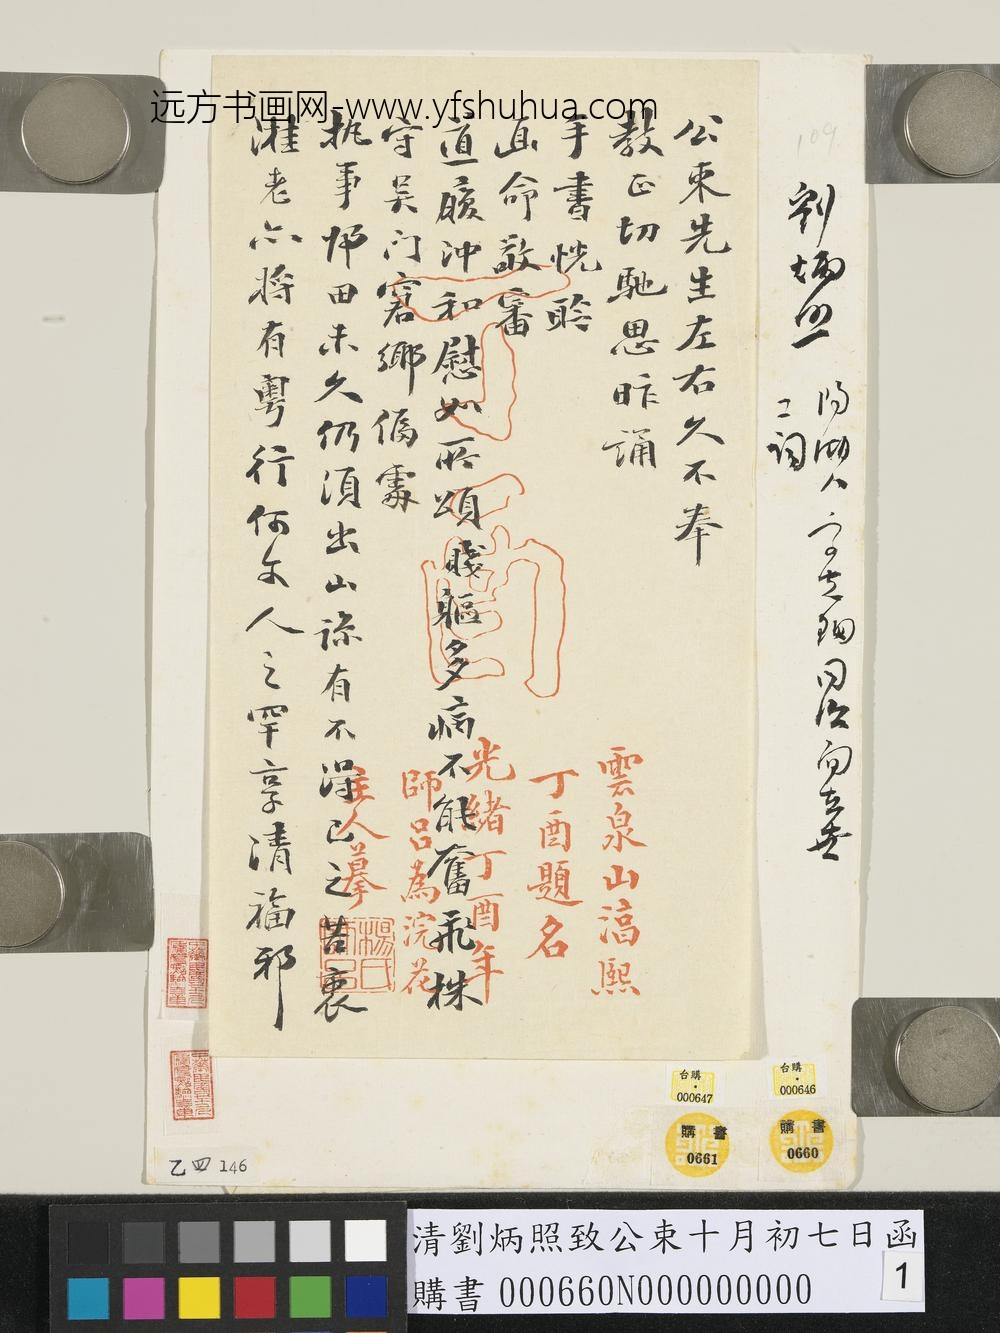 远方书画网-www.yfshuhua.com
公束先生左右久不奉
教正切馳思昨誦
手書恍聆
面命敬審
道履沖和慰如所頌賤軀多病不能奮飛株
守吴门窘鄉偪處
执事帰田未久仍須出山諒有不得已之苦衷
淮老亦将有粤行何文人之罕享清福邪
丁酉
雲泉山澫熙
丁酉題名
光緒丁酉年
師呂為浣花
主人摹
楊氏
師呂
劉炳照
陽湖人
工詞
109
台購・000647
台購・000646
購書 0661
購書 0660
乙四 146
清劉炳照致公束十月初七日函
購書 000660N000000000
1